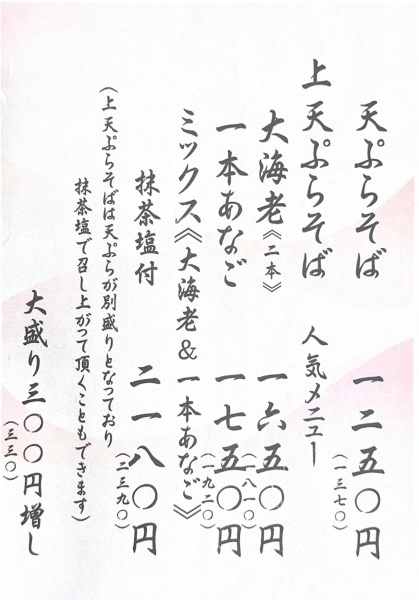 天ぷらそば 一二五〇円
(一三七〇)
上天ぷらそば 人気メニュー
大海老《二本》 一六五〇円
(一八一〇)
一本あなご 一七五〇円
(一九二〇)
ミックス《大海老&一本あなご》
抹茶塩付 二一八〇円
(二三九〇)
(上天ぷらそばは天ぷらが別盛りとなっており
抹茶塩で召し上がって頂くこともできます)
大盛り三〇〇円増し
(三三〇)